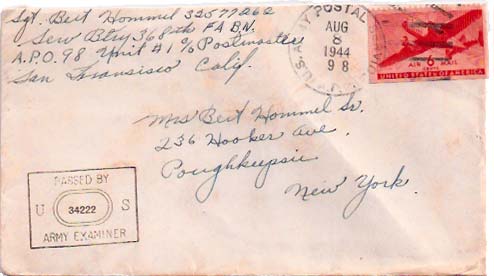 Sgt. Bert Hommel 32577262
Serv Btry 368th FA BN.
A.P.O. 98 Unit #1 % Postmaster
San Fransisco Calif.
U.S. ARMY POSTAL
AUG
8
1944
98
6
CENTS
AIR MAIL
UNITED STATES OF AMERICA
Mrs Bert Hommel Sr.
236 Hooker Ave.
Poughkeepsie
New York.
PASSED BY
U 34222 S
ARMY EXAMINER